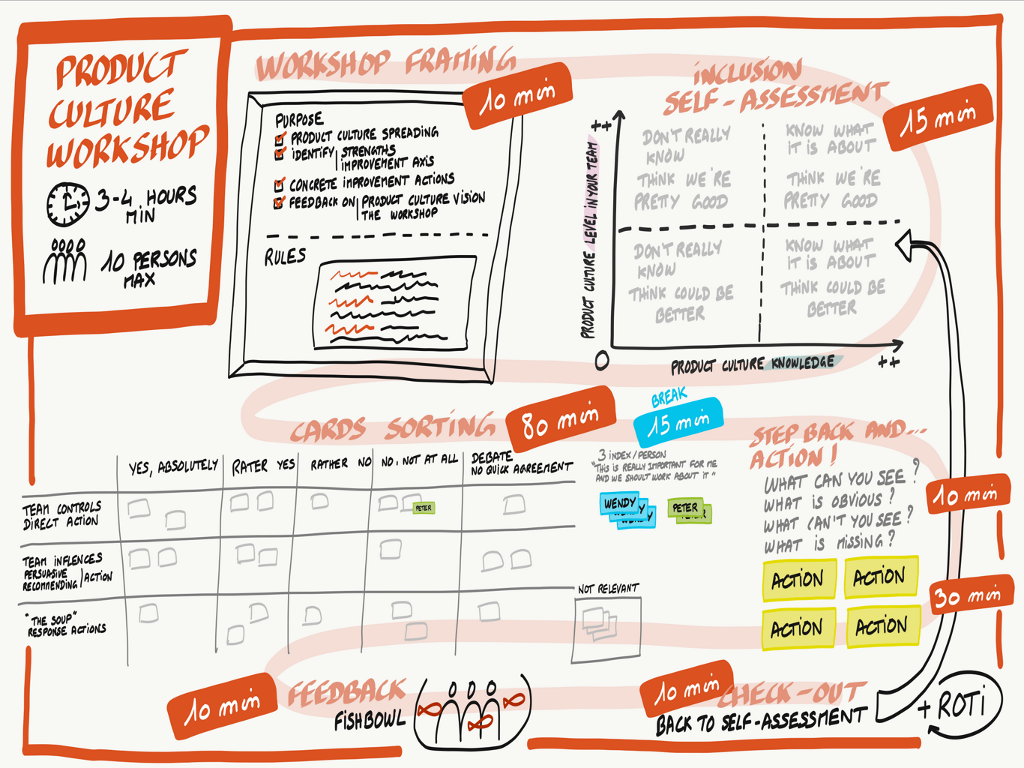 PRODUCT
CULTURE
WORKSHOP
3-4 HOURS
MIN
10 PERSONS
MAX
WORKSHOP FRAMING
10 min
PURPOSE
PRODUCT CULTURE SPREADING
IDENTIFY STRENGTHS
IMPROVEMENT AXIS
CONCRETE IMPROVEMENT ACTIONS
FEEDBACK ON PRODUCT CULTURE VISION
THE WORKSHOP
RULES
INCLUSION
SELF-ASSESSMENT
15 min
++
PRODUCT CULTURE LEVEL IN YOUR TEAM
DON'T REALLY
KNOW
THINK WE'RE
PRETTY GOOD
KNOW WHAT
IT IS ABOUT
THINK WE'RE
PRETTY GOOD
DON'T REALLY
KNOW
THINK COULD BE
BETTER
KNOW WHAT
IT IS ABOUT
THINK COULD BE
BETTER
O
PRODUCT CULTURE KNOWLEDGE
++
CARDS SORTING
80 min
BREAK
15 min
YES, ABSOLUTELY
RATER YES
RATHER NO
NO, NOT AT ALL
DEBATE
NO QUICK AGREEMENT
TEAM CONTROLS
DIRECT ACTION
PETER
TEAM INFLENCES
PERSUASIVE
RECOMMENDING ACTION
"THE SOUP"
RESPONSE ACTIONS
NOT RELEVANT
3 INDEX/PERSON
"THIS IS REALLY IMPORTANT FOR ME
AND WE SHOULT WORK ABOUT IT"
WENDY
WENDY
PETER
PETER
STEP BACK AND...
ACTION!
WHAT CAN YOU SEE?
WHAT IS OBVIOUS?
WHAT CAN'T YOU SEE?
WHAT IS MISSING?
10 min
ACTION
ACTION
ACTION
ACTION
30 min
10 min
FEEDBACK
FISHBOWL
10 min
CHECK-OUT
BACK TO SELF-ASSESSMENT
+ ROTI